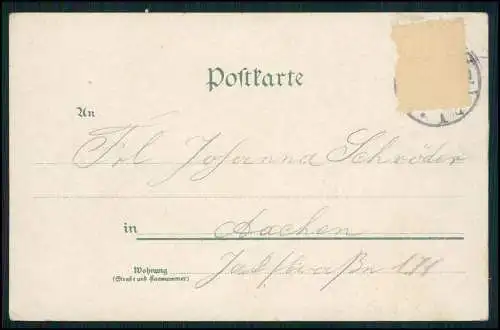 Postkarte
An
Frl Johanna Schröder
in Aachen
Wohnung
(Straße und Hausnummer)